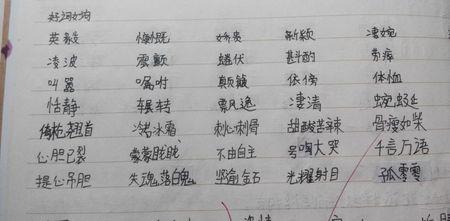 好词好句
英毅 慷慨 娇贵 新颖 凄婉
凌波 震颤 蟠伏 斟酌 劳瘁
叫嚣 嘱咐 颠簸 依傍 体恤
恬静 辗转 飘逸 凄清 蜿蜒
倚枕翘首 冷若冰霜 刺心刺骨 甜酸苦辣 骨瘦如柴
心胆已裂 蒙蒙胧胧 不由自主 号啕大哭 千言万语
提心吊胆 失魂落魄 坚俞金石 光耀射目 孤零零